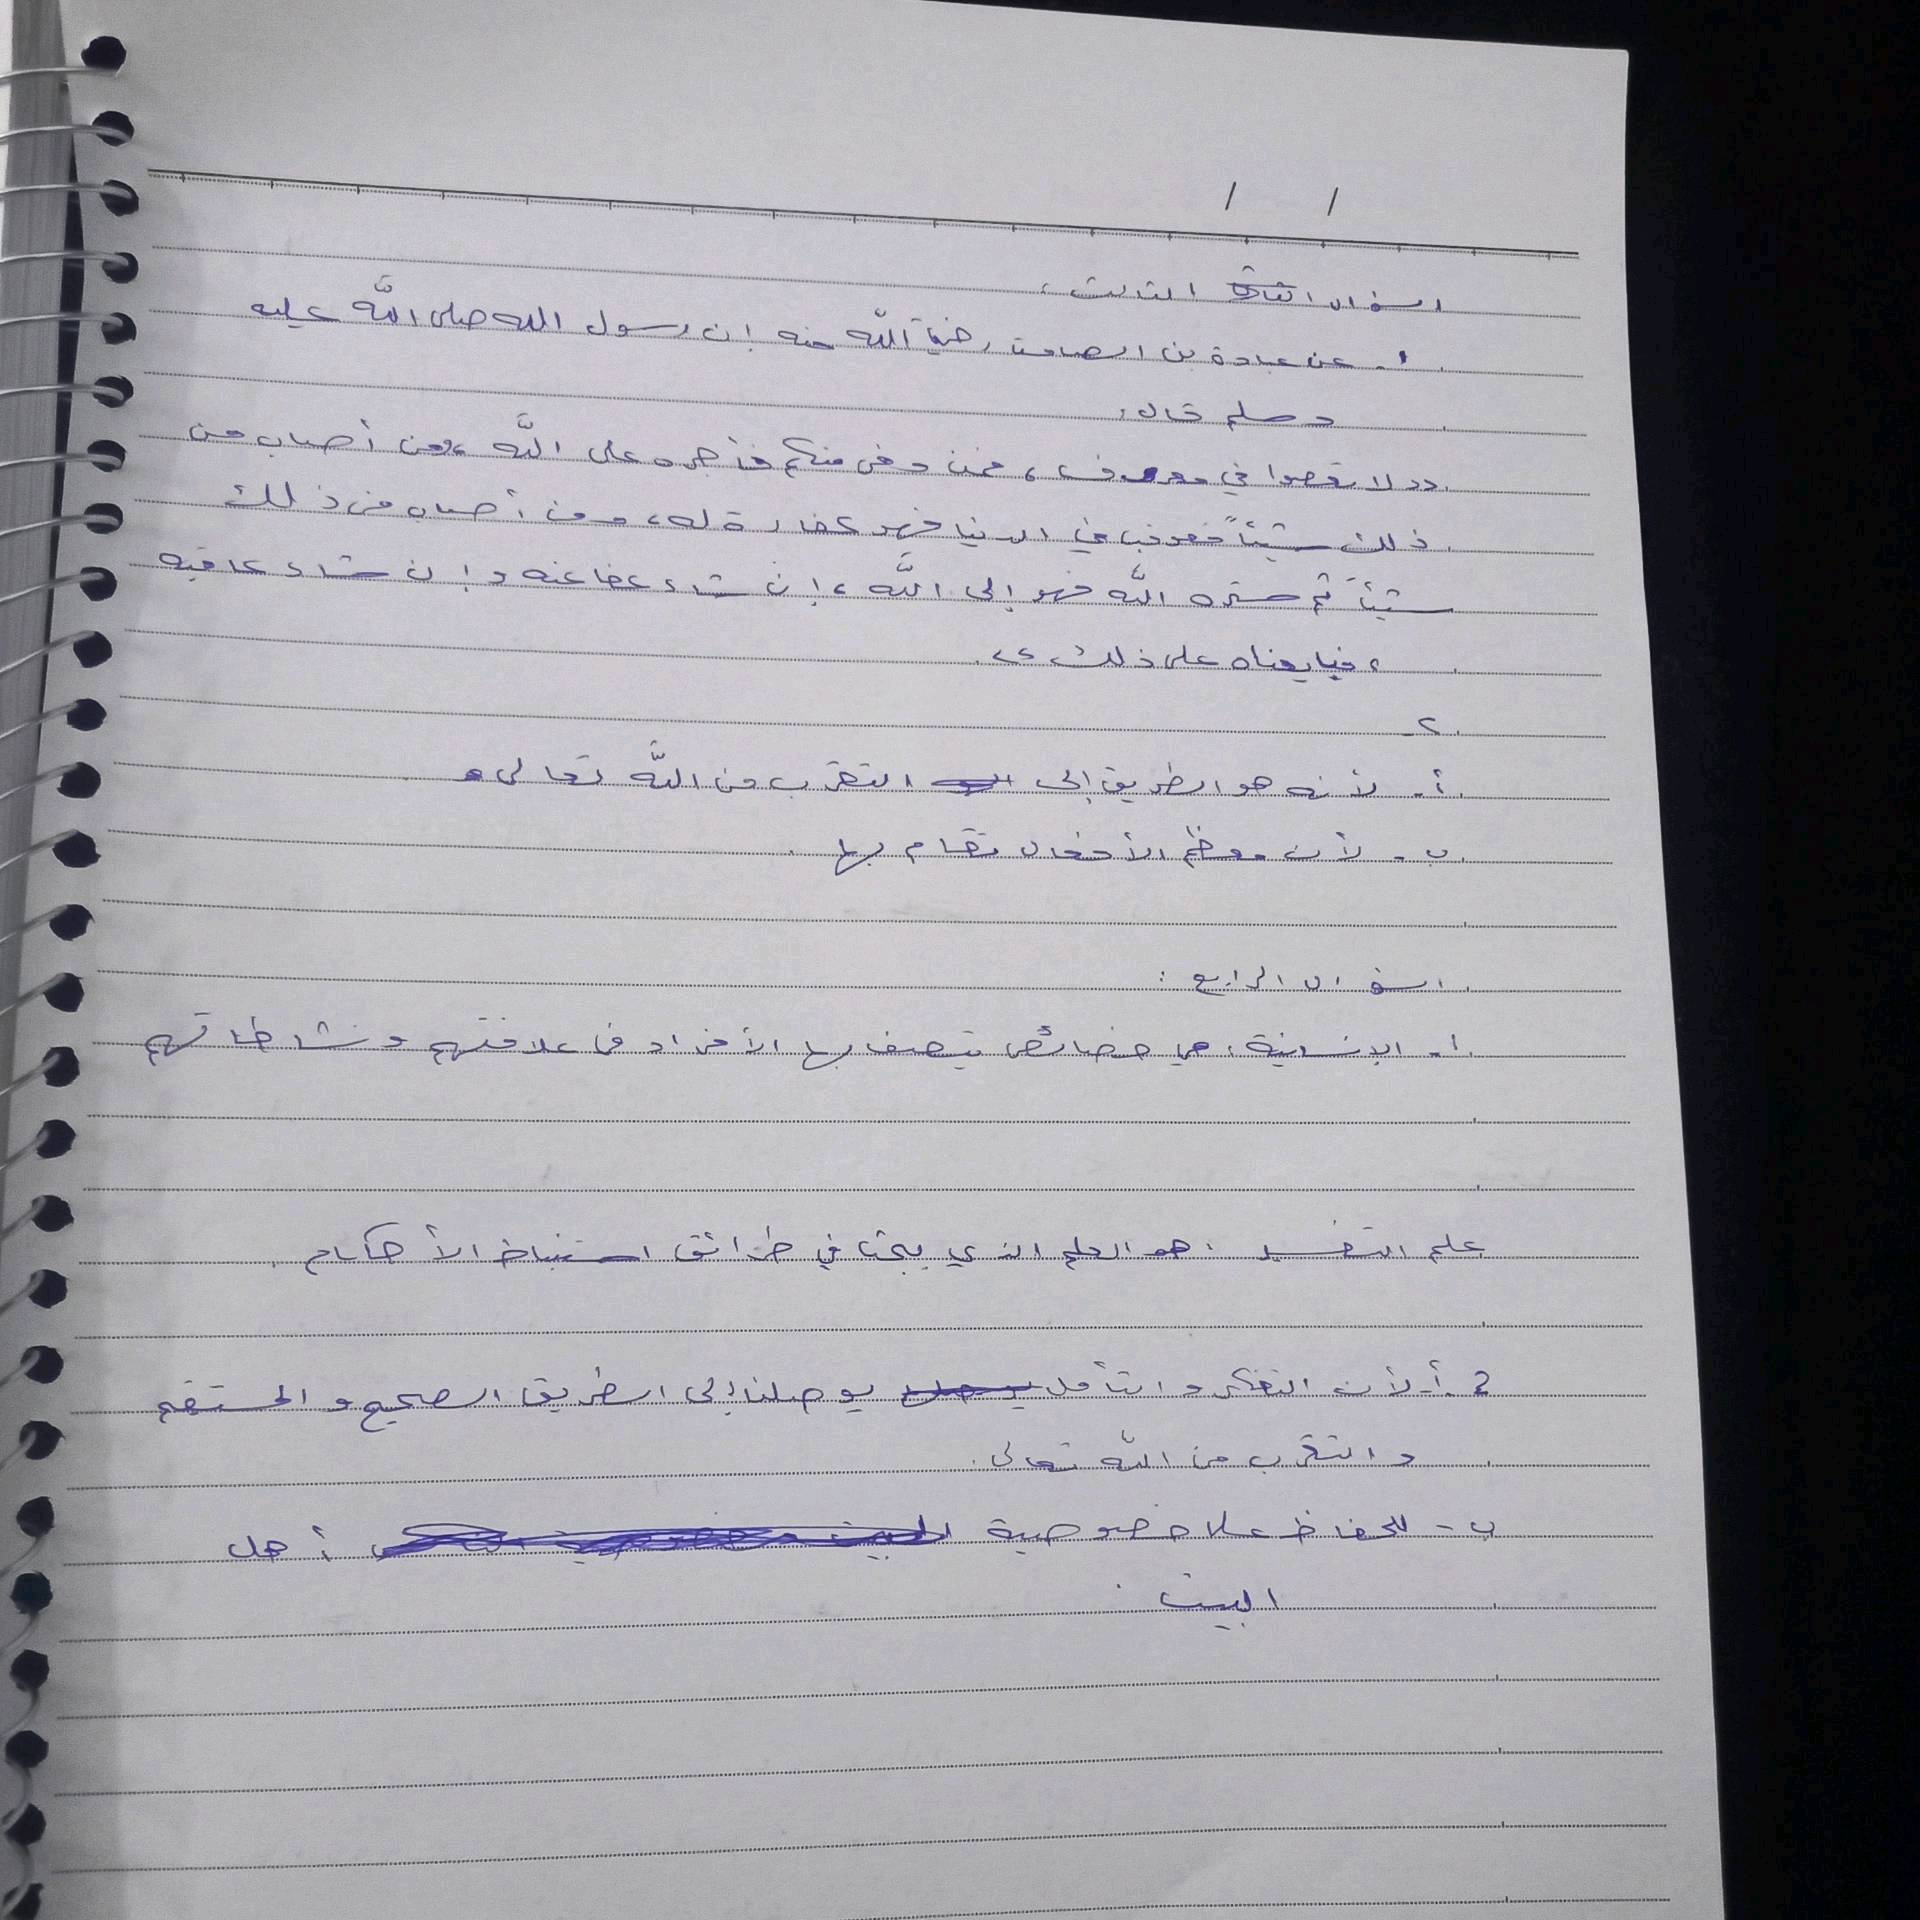 السؤال الثالث:
١- عن عبادة بن الصامت رضي الله عنه إن رسول الله صلى الله عليه
وسلم قال:
"لا تعصوا في معروف، فمن وفى منكم فأجره على الله، ومن أصاب من
ذلك شيئاً فعوقب في الدنيا فهو كفارة له، ومن أصاب من ذلك
شيئاً ثم ستره الله فهو إلى الله، إن شاء عفا عنه وإن شاء عاقبه
، فبايعناه على ذلك".
٢-
أ- لأنه هو الطريق إلى التقرب من الله تعالى.
ب- لأن معظم الأفعال تقام بها.
السؤال الرابع:
١- الإنسانية: هي خصائص يتصف بها الأفراد في علاقتهم ونشاطاتهم
علم التفسير: هو العلم الذي يبحث في طرائق استنباط الأحكام.
2. أ- لأن التفكر والتأمل يوصلنا إلى الطريق الصحيح والمستقيم
والتقرب من الله تعالى.
ب- للحفاظ علا خصوصية أهل
البيت.